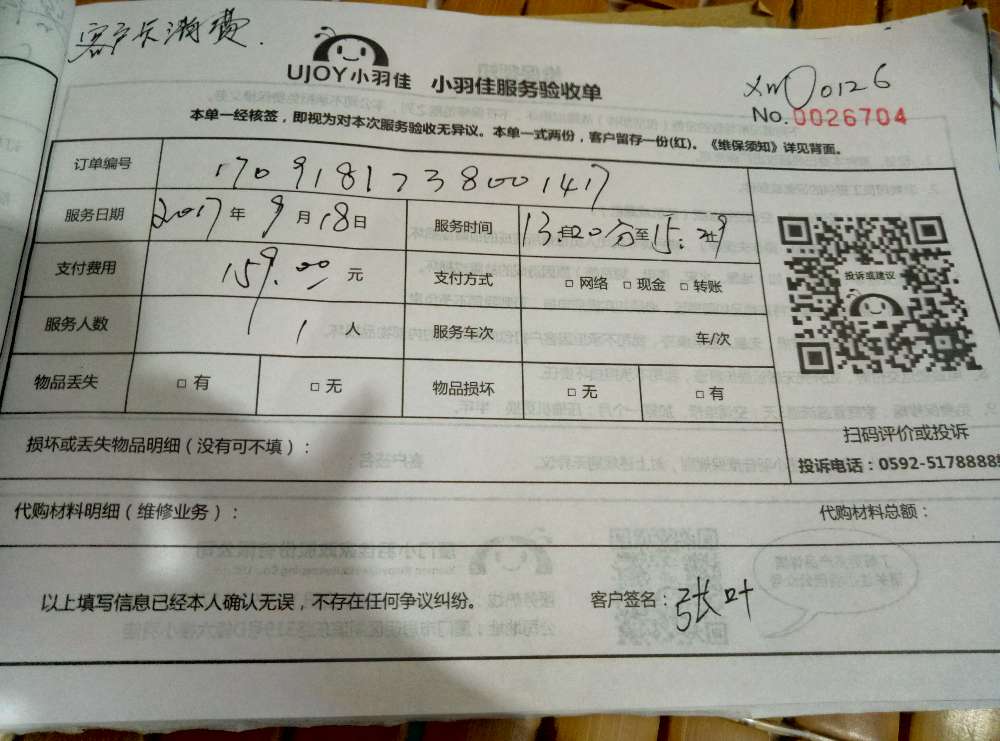 客户卡消费.
UJOY小羽佳 小羽佳服务验收单
xm00126
No.0026704
本单一经核签，即视为对本次服务验收无异议。本单一式两份，客户留存一份(红)。《维保须知》详见背面。
订单编号 1709181738001417
服务日期 2017年9月18日 服务时间 13:20分至15:29
支付费用 159.00元 支付方式 □ 网络 □ 现金 □ 转账
服务人数 1人 服务车次 车/次
物品丢失 □ 有 □ 无 物品损坏 □ 无 □ 有
投诉或建议
扫码评价或投诉
损坏或丢失物品明细（没有可不填）：
投诉电话：0592-5178888
代购材料明细（维修业务）： 代购材料总额：
以上填写信息已经本人确认无误，不存在任何争议纠纷。 客户签名：张叶